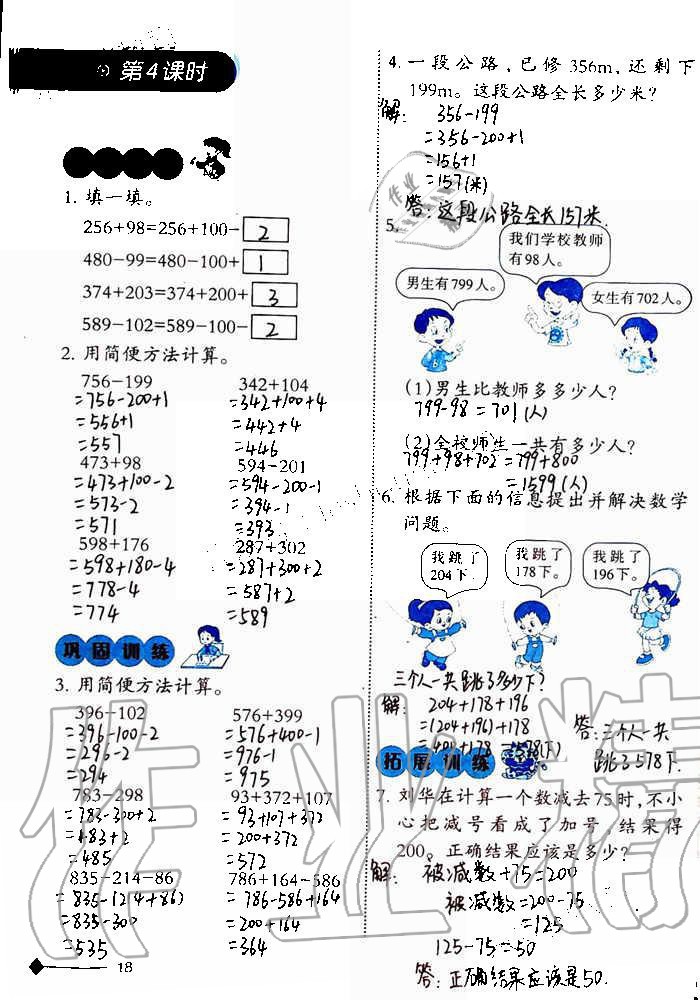 第4课时
1. 填一填。
256+98=256+100-2
480-99=480-100+1
374+203=374+200+3
589-102=589-100-2
2. 用简便方法计算。
756-199
=756-200+1
=556+1
=557
342+104
=342+100+4
=442+4
=446
473+98
=473+100-2
=573-2
=571
594-201
=594-200-1
=394-1
=393
598+176
=598+180-4
=778-4
=774
287+302
=287+300+2
=587+2
=589
巩固训练
3. 用简便方法计算。
396-102
=396-100-2
=296-2
=294
576+399
=576+400-1
=976-1
=975
783-298
=783-300+2
=483+2
=485
93+372+107
=93+107+372
=200+372
=572
835-214-86
=835-(214+86)
=835-300
=535
786+164-586
=786-586+164
=200+164
=364
18
4. 一段公路，已修356m，还剩下
199m。这段公路全长多少米？
解：356-199
=356-200+1
=156+1
=157(米)
答：这段公路全长157米.
5.
我们学校教师
有98人。
男生有799人。
女生有702人。
(1)男生比教师多多少人？
799-98=701(人)
(2)全校师生一共有多少人？
799+98+702=799+800
=1599(人)
6. 根据下面的信息提出并解决数学
问题。
我跳了
204下。
我跳了
178下。
我跳了
196下。
三个人一共跳了多少下？
解：204+178+196
=(204+196)+178
=400+178=578(下)
答：三个人一共
跳了578下
拓展训练
7. 刘华在计算一个数减去75时，不小
心把减号看成了加号，结果得
200。正确结果应该是多少？
解：被减数+75=200
被减数=200-75
=125
125-75=50
答：正确结果应该是50.
作业精